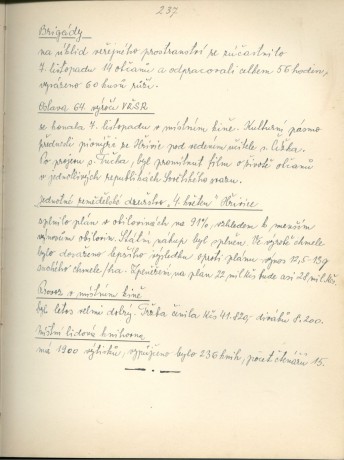 237
Brigády
na úklid veřejného prostranství se zúčastnilo
7. listopadu 14 občanů a odpracovali celkem 56 hodin,
vysázeno 60 kusů růží.
Oslava 64. výročí VŘSR
se konala 7. listopadu v místním kině. Kulturní pásmo
předvedli pionýři ze Hřivic pod vedením učitele s. Ciška.
Po projevu s. Sucha, byl promítnut film o životě občanů
v jednotlivých republikách Sovětského svazu.
Jednotné zemědělské družstvo "4. květen" Hřivice
splnilo plán v obilovinách na 91% vzhledem k menším
výnosům obilovin. Státní nákup byl splněn. Ve výrobě chmele
bylo dosaženo lepšího výsledku oproti plánu výnos 12,5-13q
suchého chmele/ha. Zpeněžení na plán 22 mil. Kčs bude asi 28 mil. Kčs
Provoz v místním kině
byl letos velmi dobrý. Tržba činila Kčs 41.820,- diváků 8.200.
Místní lidová knihovna
má 1900 výtisků, vypůjčeno bylo 236 knih, počet čtenářů 15.